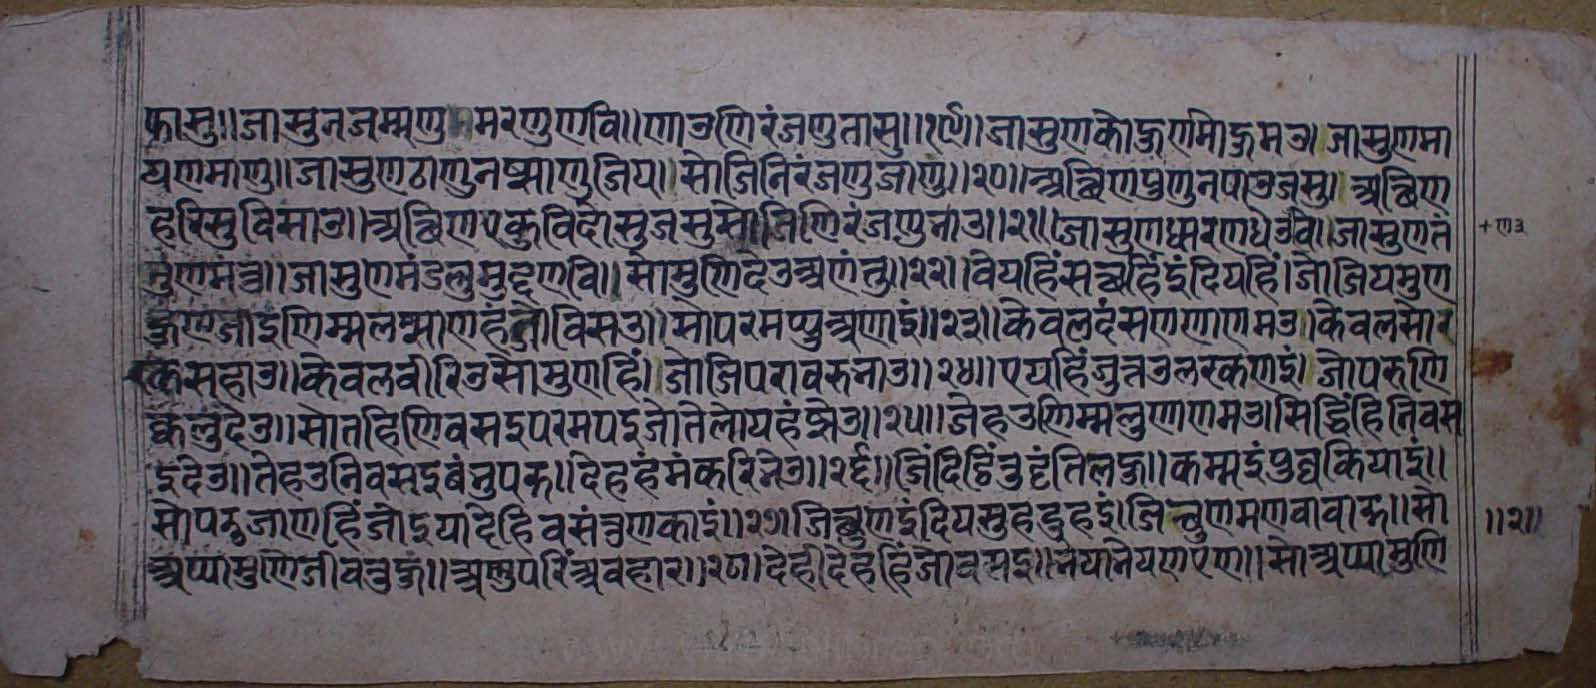 फासु॥जासुनजम्मणुमरणुणवि॥णाउणिरंजणुतासु॥१९॥जासुणकोहुणमोहुमउ।जासुणमा
यणमाणु॥जासुणठाणुनझाणुजिय॥सोजिनिरंजणुजाणु॥२०॥अच्छिणपुणुनपाउजसु।अच्छिण
हरिसुविसाउ॥अच्छिणएकुविदोसुजसुसोजिणिरंजणुनाउ॥२१॥जासुणधारणधेउवि।जासुणतं
सुणमंतु॥जासुणमंडलुमुद्दणवि॥सोमुणिदेउअणंतु॥२२॥वेयहिंसच्छहिंइंदियहिं।जोजियमुण
हुणजाइणिम्मलझाणहंजोविसउ॥सोपरमप्पुअणाइ॥२३॥केवलदंसणणाणमउ।केवलसोर
रकसहाउ॥केवलवीरिउसोमुणहिं।जोजिपरावरुनाउ॥२४॥एयहिंजुत्तउलरकणइं।जोपरुणि
क्कलुदेउ॥सोतहिणिवसइपरमपइजोतेलोयहंझेउ॥२५॥जेहउणिम्मलुणाणमउ।सिद्धिहिनिवस
इदेउ॥तेहउनिवसइबंनुपरु॥देहहंमंकरिनेउ॥२६॥जिंदिट्ठिंतुट्टंतिलहु॥कम्मइंपुव्वकियाइं॥
सोपरुजाणहिंजोइयादेहिवसंतुणकाइं॥२७॥जित्थुणइंदियसुहदुहइं।जित्थुणमणवावारु॥सो
अप्पामुणिजीवतुहुं॥अणुपरिंअवहार॥२८॥देहीदेहहिंजोवसइ॥नेयानेयणएण॥सोअप्पामुणि
+ण३
॥२॥